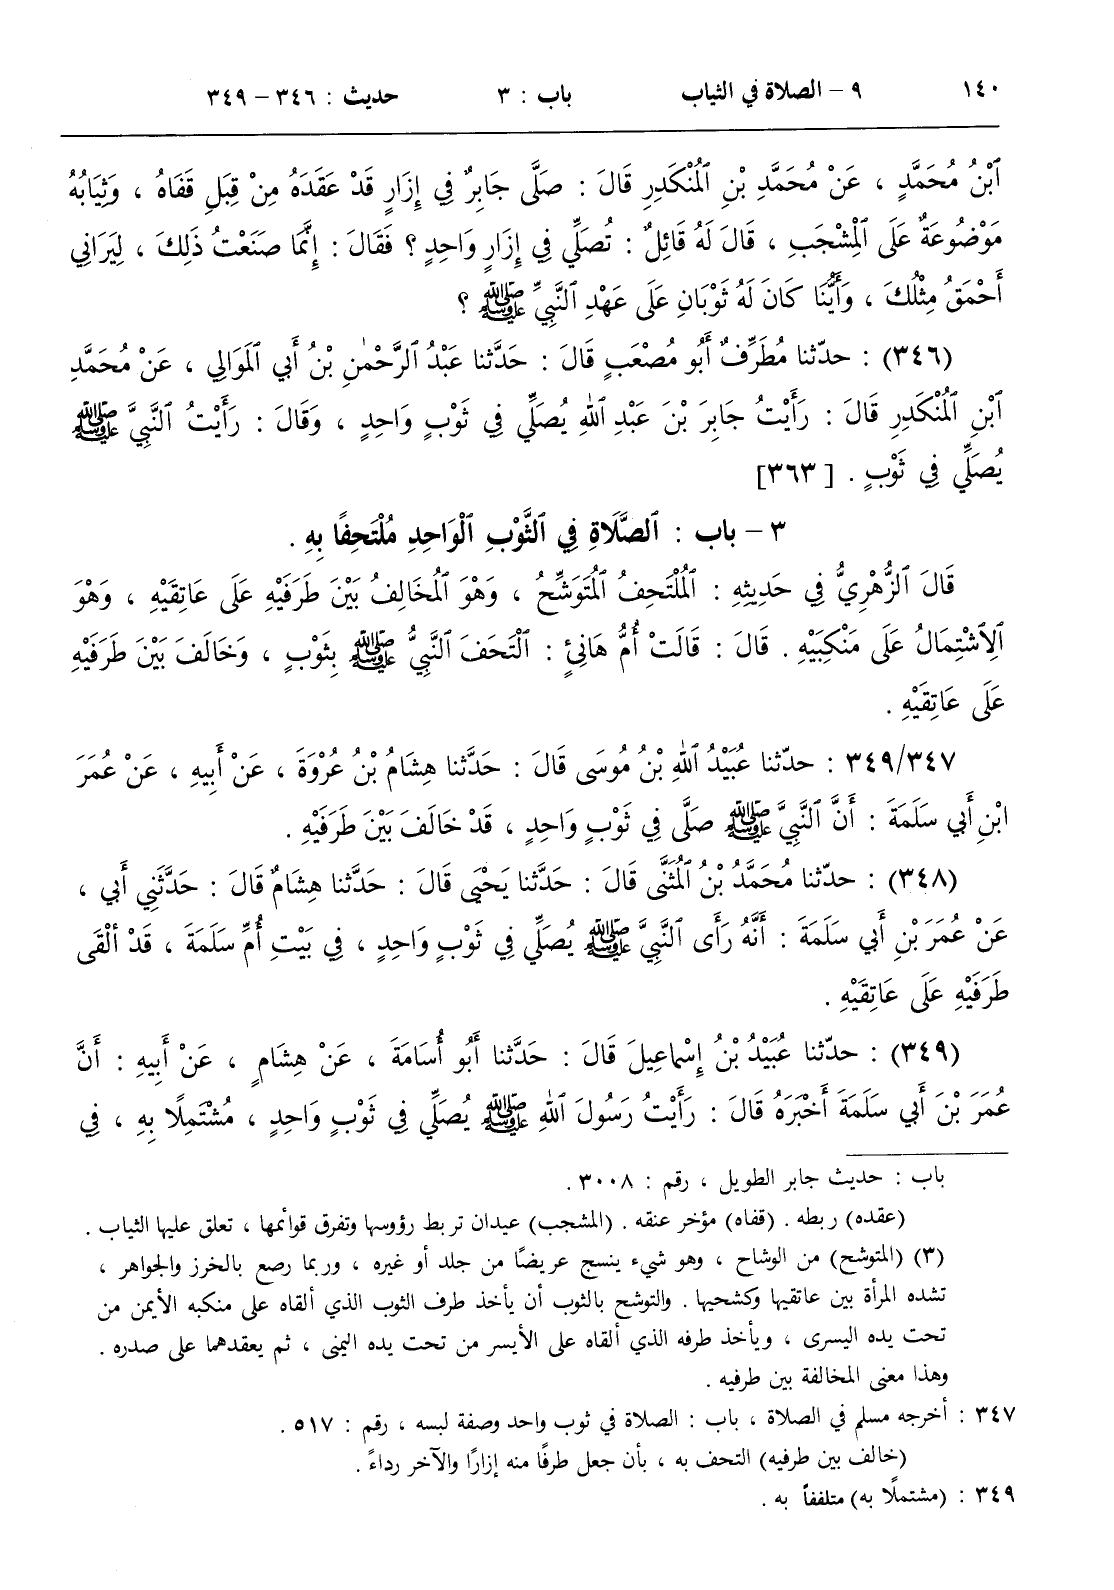 ١٤٠ ٩ – الصلاة في الثياب باب : ٣ حديث : ٣٤٦ – ٣٤٩
ٱبْنُ مُحَمَّدٍ ، عَنْ مُحَمَّدِ بْنِ ٱلْمُنْكَدِرِ قَالَ : صَلَّى جَابِرٌ فِي إِزَارٍ قَدْ عَقَدَهُ مِنْ قِبَلِ قَفَاهُ ، وَثِيَابُهُ
مَوْضُوعَةٌ عَلَى ٱلْمِشْجَبِ ، قَالَ لَهُ قَائِلٌ : تُصَلِّي فِي إِزَارٍ وَاحِدٍ ؟ فَقَالَ : إِنَّمَا صَنَعْتُ ذَلِكَ ، لِيَرَانِي
أَحْمَقُ مِثْلُكَ ، وَأَيُّنَا كَانَ لَهُ ثَوْبَانِ عَلَى عَهْدِ ٱلنَّبِيِّ ﷺ ؟
(٣٤٦) : حدّثنا مُطَرِّفٌ أَبُو مُصْعَبٍ قَالَ : حَدَّثنا عَبْدُ ٱلرَّحْمٰنِ بْنُ أَبِي ٱلْمَوَالِي ، عَنْ مُحَمَّدِ
ٱبْنِ ٱلْمُنْكَدِرِ قَالَ : رَأَيْتُ جَابِرَ بْنَ عَبْدِ ٱللهِ يُصَلِّي فِي ثَوْبٍ وَاحِدٍ ، وَقَالَ : رَأَيْتُ ٱلنَّبِيَّ ﷺ
يُصَلِّي فِي ثَوْبٍ . [٣٦٣]
٣ – باب : ٱلصَّلَاةِ فِي ٱلثَّوْبِ ٱلْوَاحِدِ مُلْتَحِفًا بِهِ .
قَالَ ٱلزُّهْرِيُّ فِي حَدِيثِهِ : ٱلْمُلْتَحِفُ ٱلْمُتَوَشِّحُ ، وَهْوَ ٱلْمُخَالِفُ بَيْنَ طَرَفَيْهِ عَلَى عَاتِقَيْهِ ، وَهْوَ
ٱلِاشْتِمَالُ عَلَى مَنْكِبَيْهِ . قَالَ : قَالَتْ أُمُّ هَانِئٍ : ٱلْتَحَفَ ٱلنَّبِيُّ ﷺ بِثَوْبٍ ، وَخَالَفَ بَيْنَ طَرَفَيْهِ
عَلَى عَاتِقَيْهِ .
٣٤٩/٣٤٧ : حدّثنا عُبَيْدُ ٱللهِ بْنُ مُوسَى قَالَ : حَدَّثنا هِشَامُ بْنُ عُرْوَةَ ، عَنْ أَبِيهِ ، عَنْ عُمَرَ
ابْنِ أَبِي سَلَمَةَ : أَنَّ ٱلنَّبِيَّ ﷺ صَلَّى فِي ثَوْبٍ وَاحِدٍ ، قَدْ خَالَفَ بَيْنَ طَرَفَيْهِ .
(٣٤٨) : حدّثنا مُحَمَّدُ بْنُ ٱلْمُثَنَّى قَالَ : حَدَّثنا يَحْيَى قَالَ : حَدَّثنا هِشَامٌ قَالَ : حَدَّثَنِي أَبِي ،
عَنْ عُمَرَ بْنِ أَبِي سَلَمَةَ : أَنَّهُ رَأَى ٱلنَّبِيَّ ﷺ يُصَلِّي فِي ثَوْبٍ وَاحِدٍ ، فِي بَيْتِ أُمِّ سَلَمَةَ ، قَدْ أَلْقَى
طَرَفَيْهِ عَلَى عَاتِقَيْهِ .
(٣٤٩) : حدّثنا عُبَيْدُ بْنُ إِسْمَاعِيلَ قَالَ : حَدَّثنا أَبُو أُسَامَةَ ، عَنْ هِشَامٍ ، عَنْ أَبِيهِ : أَنَّ
عُمَرَ بْنَ أَبِي سَلَمَةَ أَخْبَرَهُ قَالَ : رَأَيْتُ رَسُولَ ٱللهِ ﷺ يُصَلِّي فِي ثَوْبٍ وَاحِدٍ ، مُشْتَمِلًا بِهِ ، فِي
باب : حديث جابر الطويل ، رقم : ٣٠٠٨ .
(عقده) ربطه . (قفاه) مؤخر عنقه . (المشجب) عيدان تربط رؤوسها وتفرق قوائمها ، تعلق عليها الثياب .
(٣) (المتوشح) من الوشاح ، وهو شيء ينسج عريضًا من جلد أو غيره ، وربما رصع بالخرز والجواهر ،
تشده المرأة بين عاتقيها وكشحيها . والتوشح بالثوب أن يأخذ طرف الثوب الذي ألقاه على منكبه الأيمن من
تحت يده اليسرى ، ويأخذ طرفه الذي ألقاه على الأيسر من تحت يده اليمنى ، ثم يعقدهما على صدره .
وهذا معنى المخالفة بين طرفيه .
٣٤٧ : أخرجه مسلم في الصلاة ، باب : الصلاة في ثوب واحد وصفة لبسه ، رقم : ٥١٧ .
(خالف بين طرفيه) التحف به ، بأن جعل طرفًا منه إزارًا والآخر رداءً .
٣٤٩ : (مشتملًا به) متلففاً به .